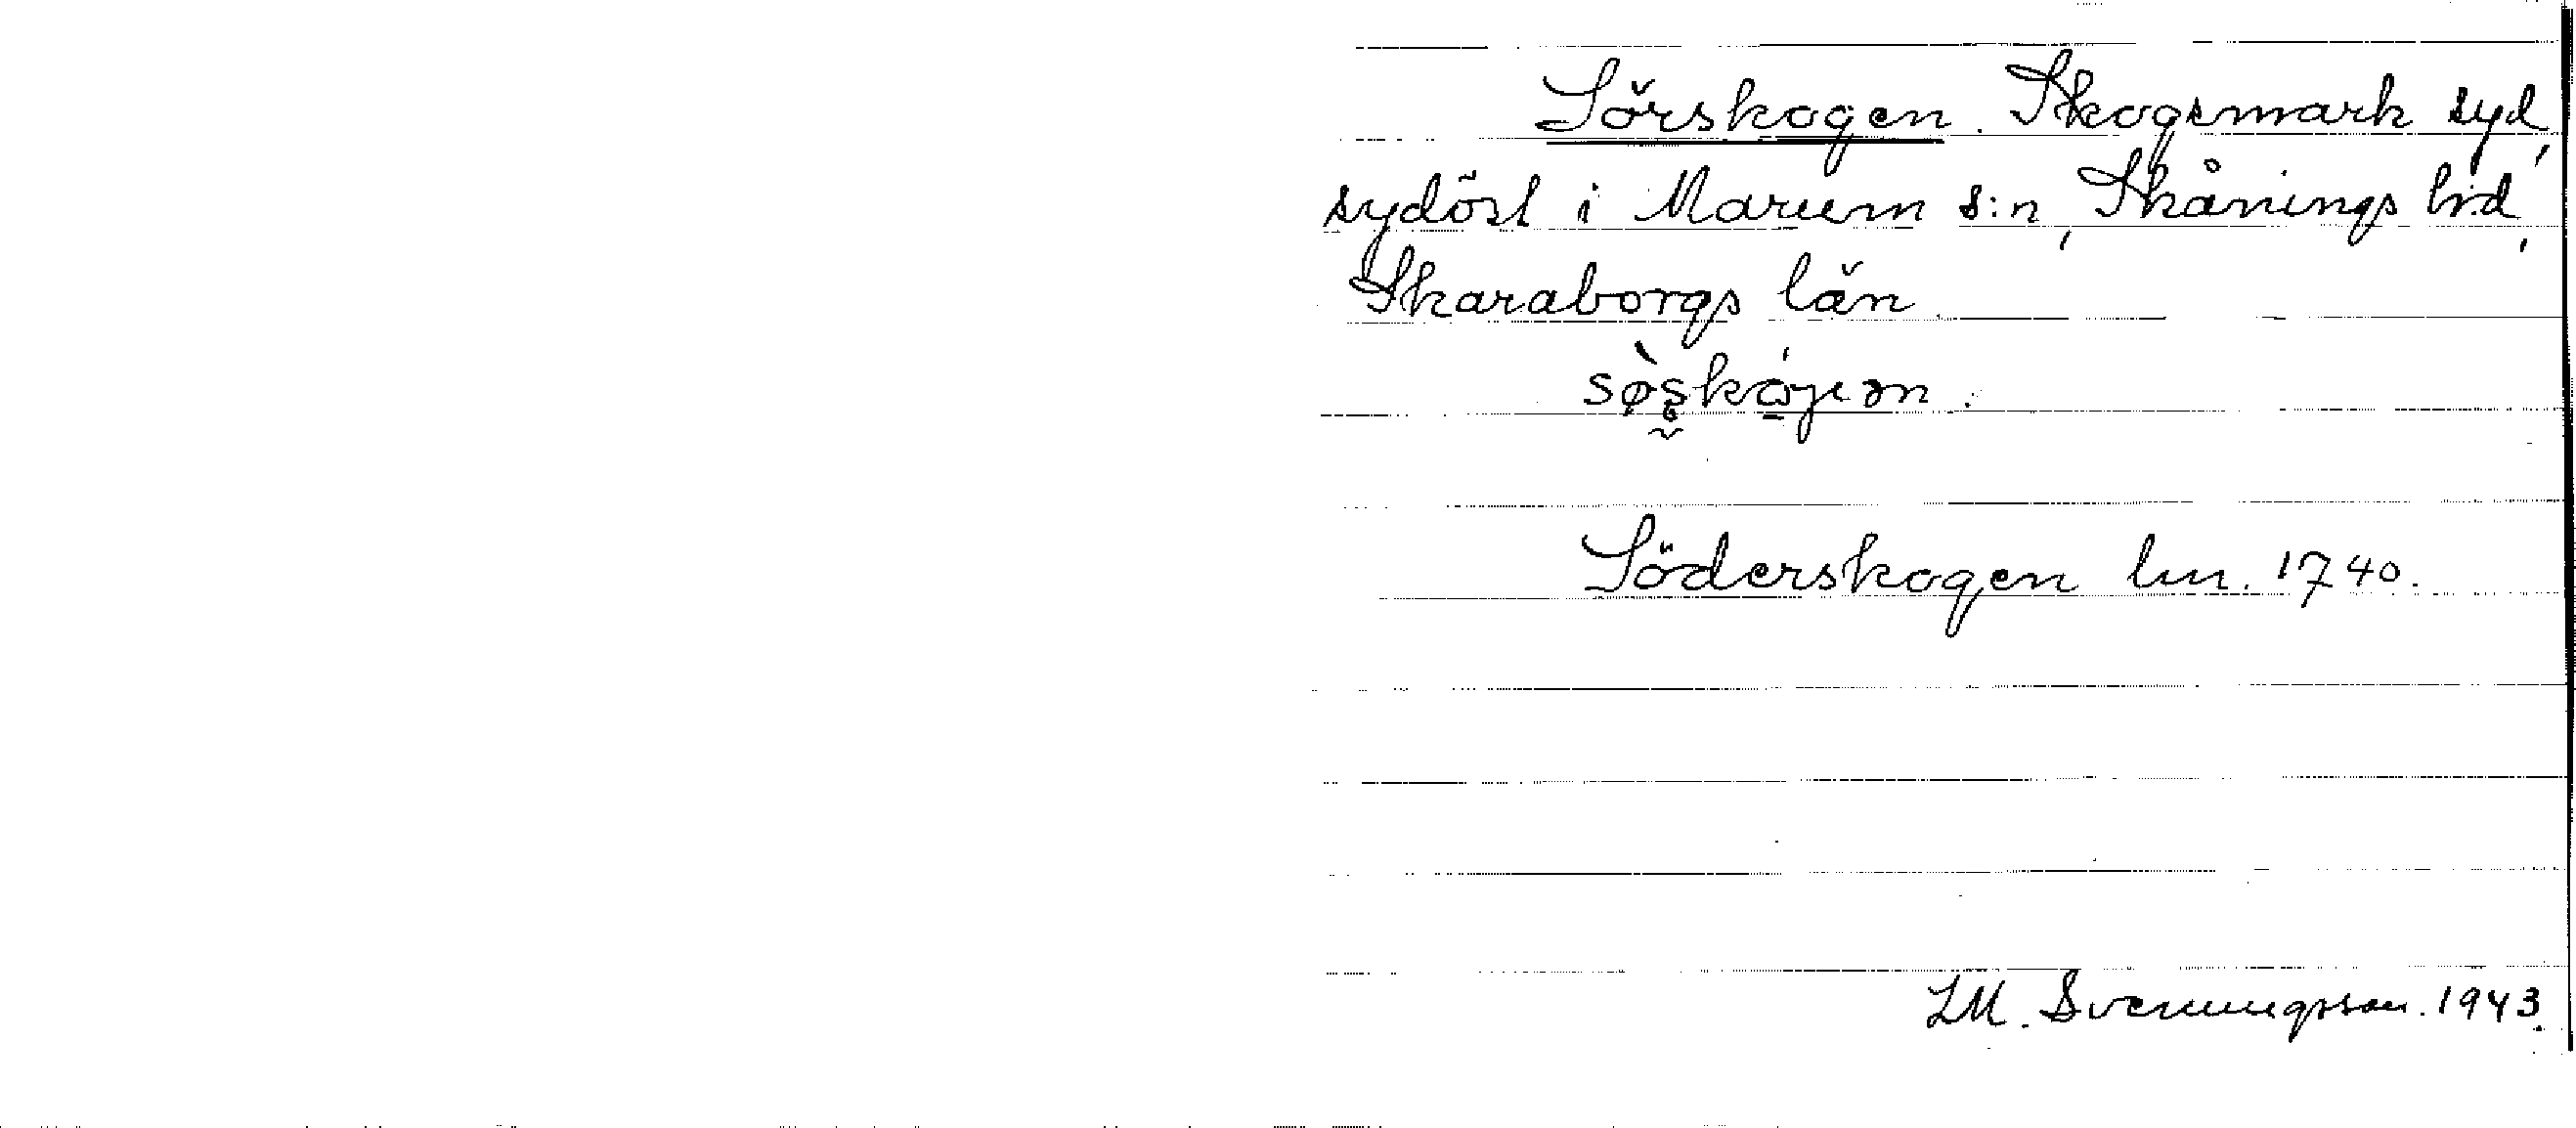 Sörskogen. Skogsmark syd,
sydöst i Marum s:n, Skånings hd,
Skaraborgs län.
Söderskogen lm. 1740.
LM. Svenungsson. 1943.